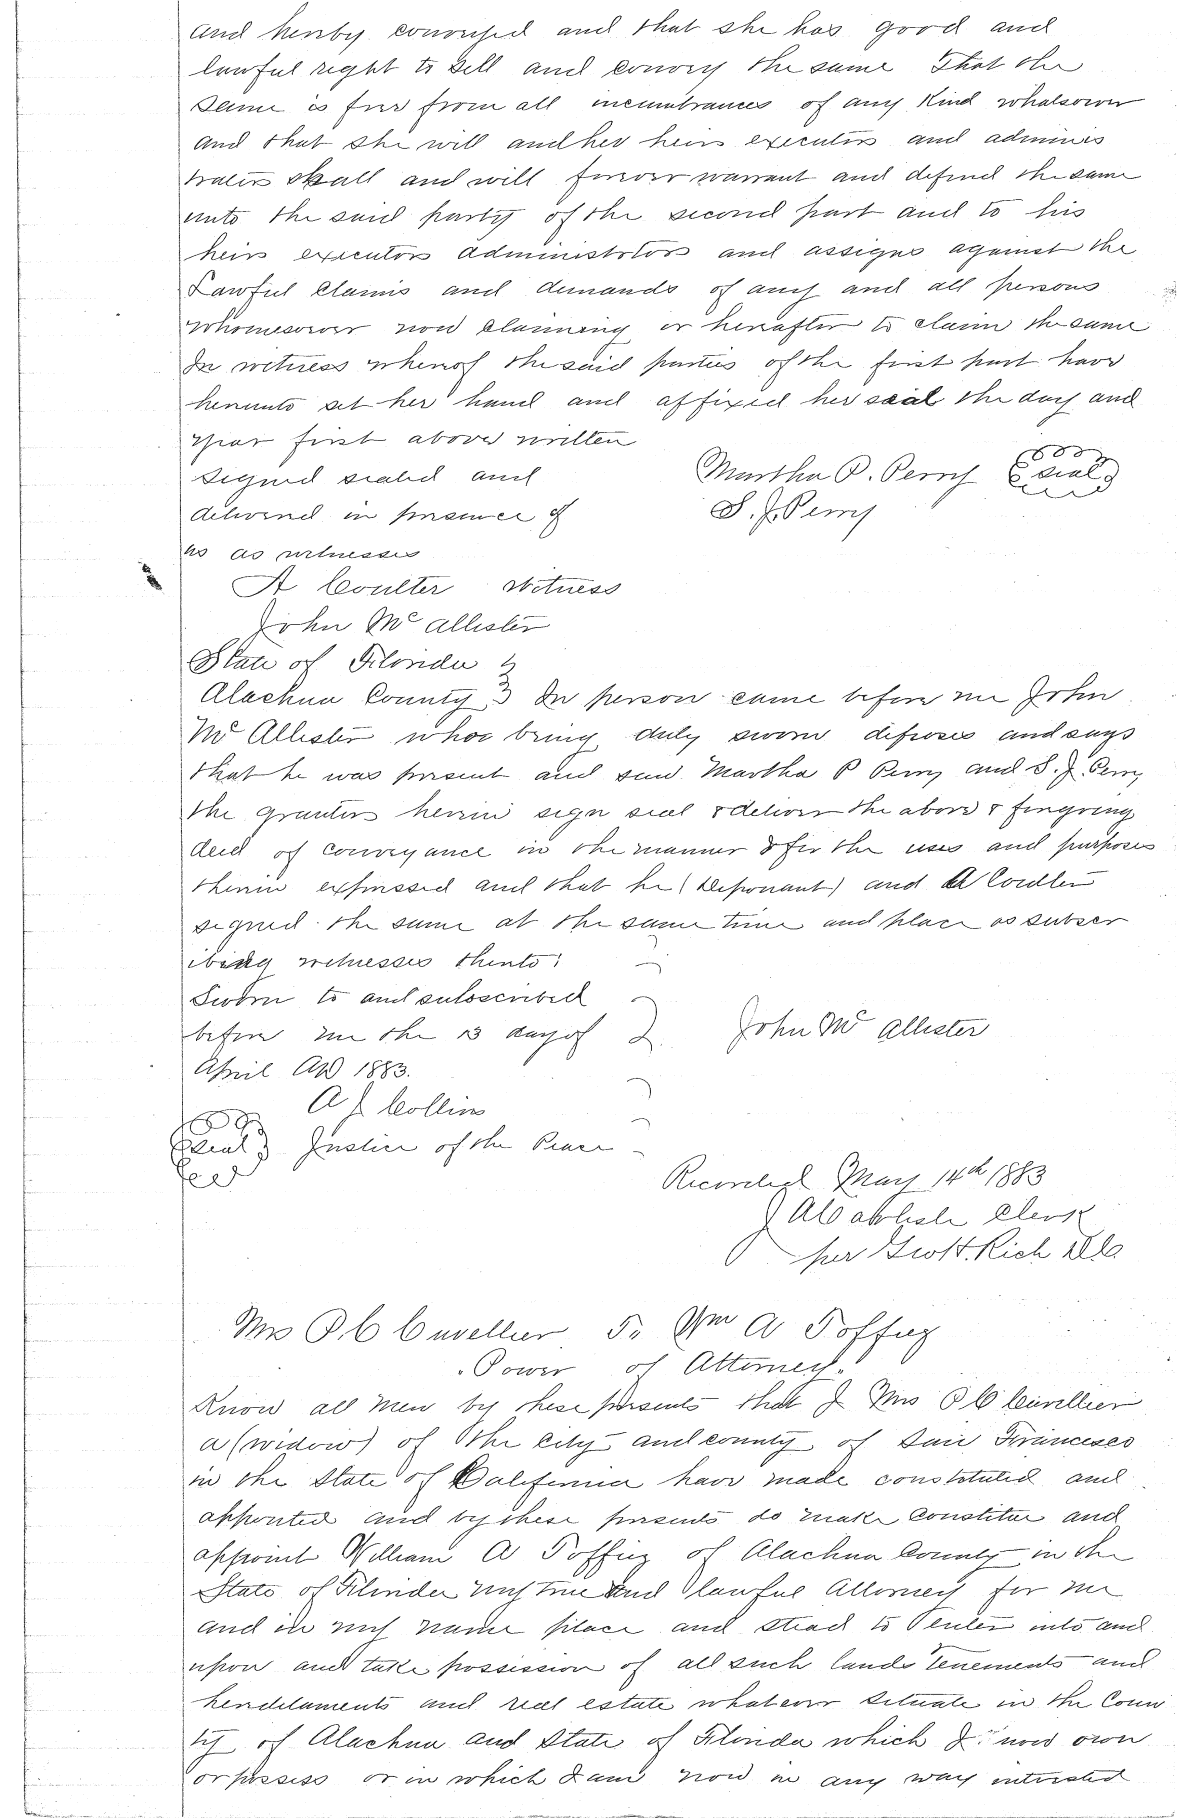 and hereby conveyed and that she has good and
lawful right to sell and convey the same That the
same is free from all incumbrances of any Kind whatsoever
and that she will and her heirs executors and adminis
trators shall and will forever warrant and defend the same
unto the said party of the second part and to his
heirs executors administrators and assigns against the
Lawful claims and demands of any and all persons
whomesoever now claiming or hereafter to claim the same
In witness whereof the said parties of the first part have
hereunto set her hand and affixed her seal the day and
year first above written
Martha P. Perry seal
Signed sealed and
S. J. Perry
delivered in presence of
us as witnesses
A Coulter Witness
John Mc allister
State of Florida
Alachua County In person came before me John
Mc Allister who being duly sworn deposes and says
that he was present and saw Martha P Perry and S. J. Perry
the grantors herein sign seal & deliver the above & forgoing
deed of conveyance in the manner & for the uses and purposes
therein expressed and that he (deponant) and A Coulter
signed the same at the same time and place as subscr
ibing witnesses thereto
Sworn to and subsscribed
before me the 13 day of
John Mc allister
April AD 1883.
A J Collins
seal Justice of the Peace
Recorded May 14th 1883
Clerk
per Rich D C
Mrs P C Cuvellier To Wm A Toffey
"Power of Attorney"
Know all men by these presents that I Mrs P C Cuvellier
a (widow) of the city and county of San Francisco
in the State of California have made constituted and
appointed and by these presents do make constitue and
appoint William A Toffey of Alachua County in the
State of Florida my true and lawful Attorney for me
and in my name place and stead to enter into and
upon and take possession of all such lands tenements and
hereditaments and real estate whatever situate in the Coun
ty of Alachua and State of Florida which I now own
or possess or in which I am now in any way interested